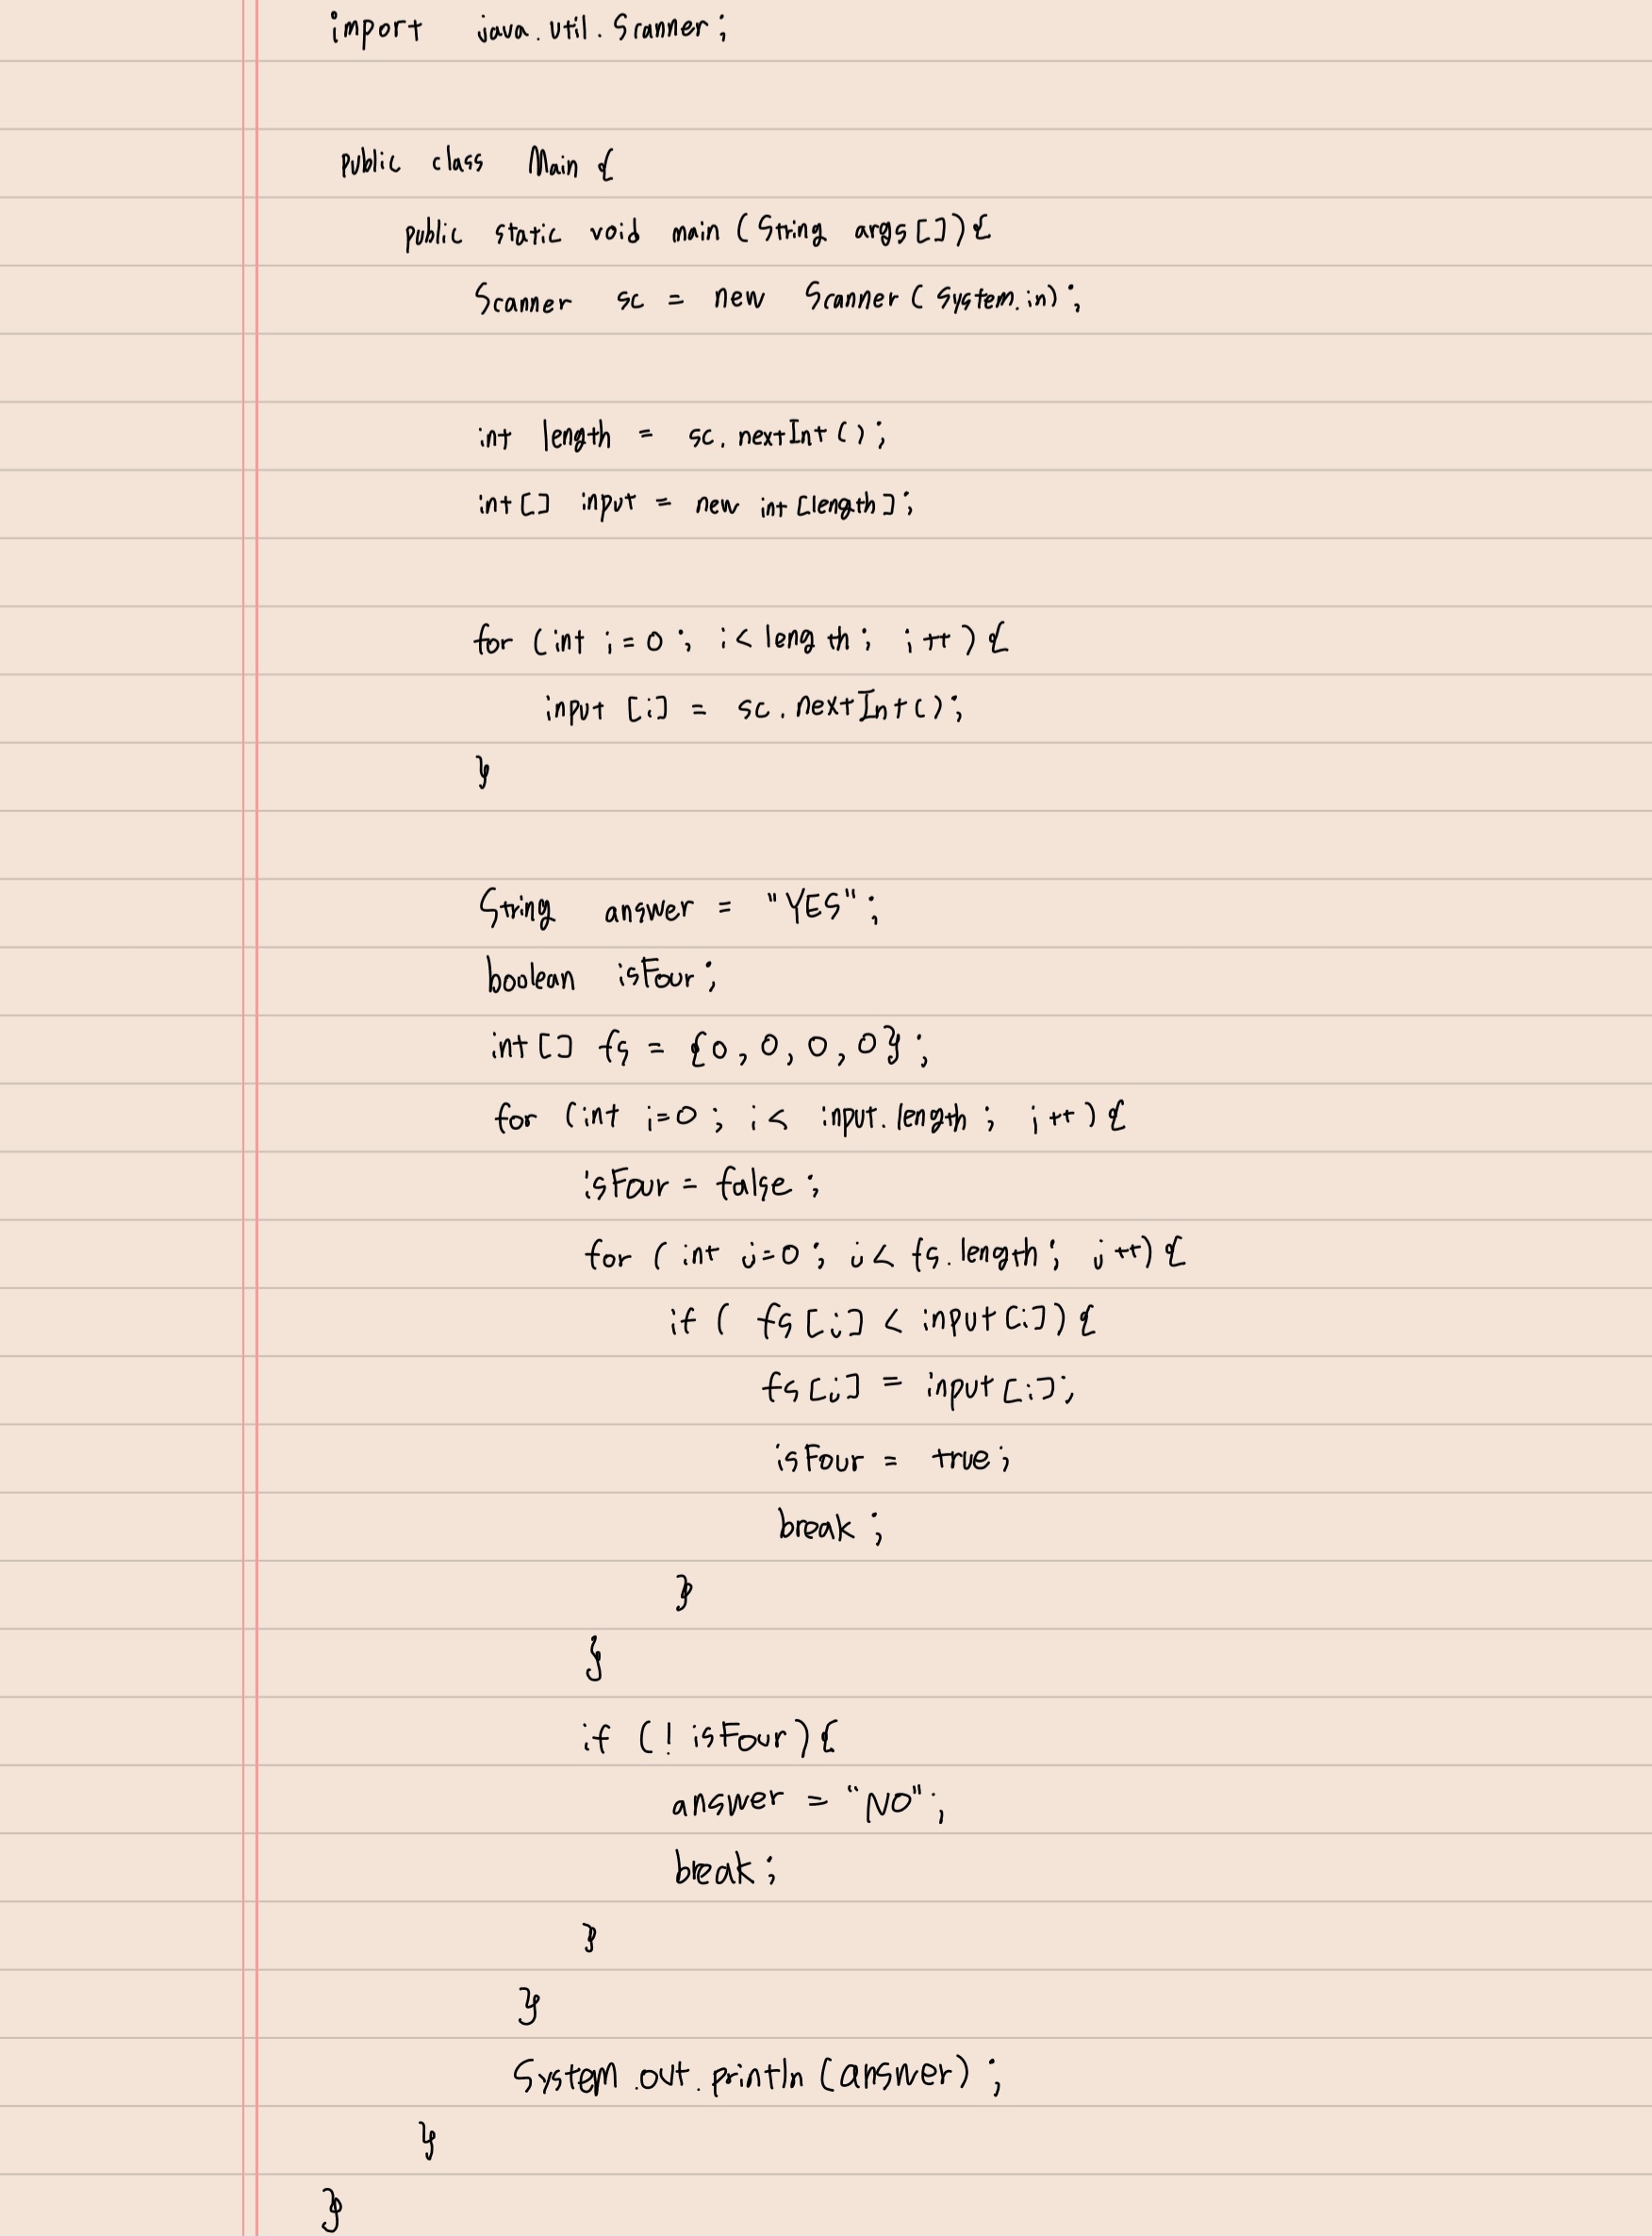 import java.util.Scanner;
public class Main {
public static void main (String args[]){
Scanner sc = new Scanner (System.in);
int length = sc.nextInt();
int[] input = new int[length];
for (int i=0; i<length; i++){
input [i] = sc.nextInt();
}
String answer = "YES";
boolean isFour;
int[] fs = {0, 0, 0, 0};
for (int i=0; i< input.length; i++){
isFour = false;
for (int j=0; j< fs.length; j++){
if ( fs[j] < input[i]){
fs[j] = input[i];
isFour = true;
break;
}
}
if (! isFour){
answer = "NO";
break;
}
}
System.out.println (answer);
}
}